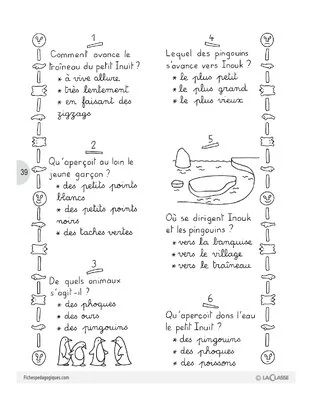 1
Comment avance le
traîneau du petit Inuit ?
* à vive allure.
* très lentement
* en faisant des
zigzags
2
Qu'aperçoit au loin le
jeune garçon ?
* des petits points
blancs
* des petits points
noirs
* des taches vertes
3
De quels animaux
s'agit-il ?
* des phoques
* des ours
* des pingouins
4
Lequel des pingouins
s'avance vers Inouk ?
* le plus petit
* le plus grand
* le plus vieux
5
Où se dirigent Inouk
et les pingouins ?
* vers la banquise
* vers le village
* vers le traîneau
6
Qu'aperçoit dans l'eau
le petit Inuit ?
* des pingouins
* des phoques
* des poissons
39
Fichespedagogiques.com
© LA CLASSE